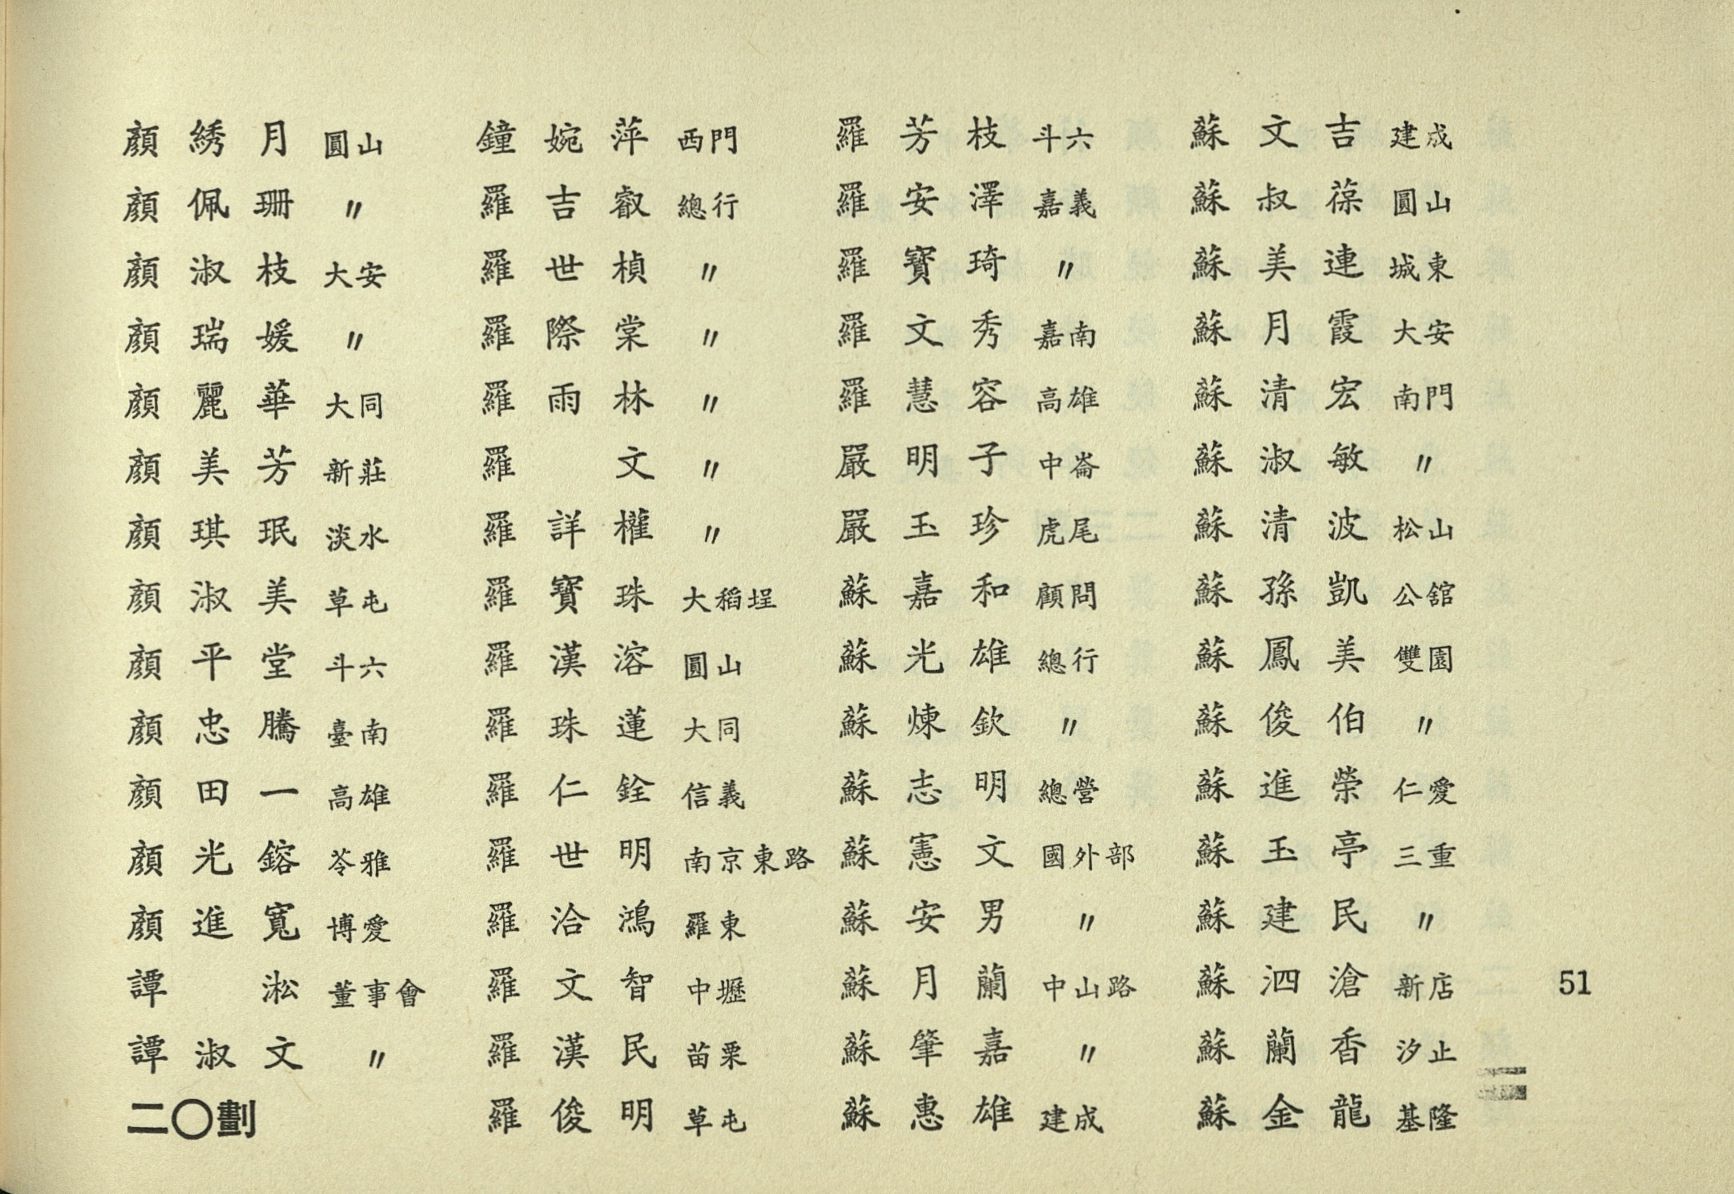 顏綉月 圓山
顏佩珊 〃
顏淑枝 大安
顏瑞媛 〃
顏麗華 大同
顏美芳 新莊
顏琪珉 淡水
顏淑美 草屯
顏平堂 斗六
顏忠騰 臺南
顏田一 高雄
顏光鎔 苓雅
顏進寬 博愛
譚淞 董事會
譚淑文 〃
二〇劃
鐘婉萍 西門
羅吉叡 總行
羅世楨 〃
羅際棠 〃
羅雨林 〃
羅文 〃
羅詳權 〃
羅寶珠 大稻埕
羅漢溶 圓山
羅珠蓮 大同
羅仁銓 信義
羅世明 南京東路
羅洽鴻 羅東
羅文智 中壢
羅漢民 苗栗
羅俊明 草屯
羅芳枝 斗六
羅安澤 嘉義
羅寶琦 〃
羅文秀 嘉南
羅慧容 高雄
嚴明子 中崙
嚴玉珍 虎尾
蘇嘉和 顧問
蘇光雄 總行
蘇煉欽 〃
蘇志明 總營
蘇憲文 國外部
蘇安男 〃
蘇月蘭 中山路
蘇肇嘉 〃
蘇惠雄 建成
蘇文吉 建成
蘇叔葆 圓山
蘇美連 城東
蘇月霞 大安
蘇清宏 南門
蘇淑敏 〃
蘇清波 松山
蘇孫凱 公舘
蘇鳳美 雙園
蘇俊伯 〃
蘇進榮 仁愛
蘇玉亭 三重
蘇建民 〃
蘇泗滄 新店
蘇蘭香 汐止
蘇金龍 基隆
51